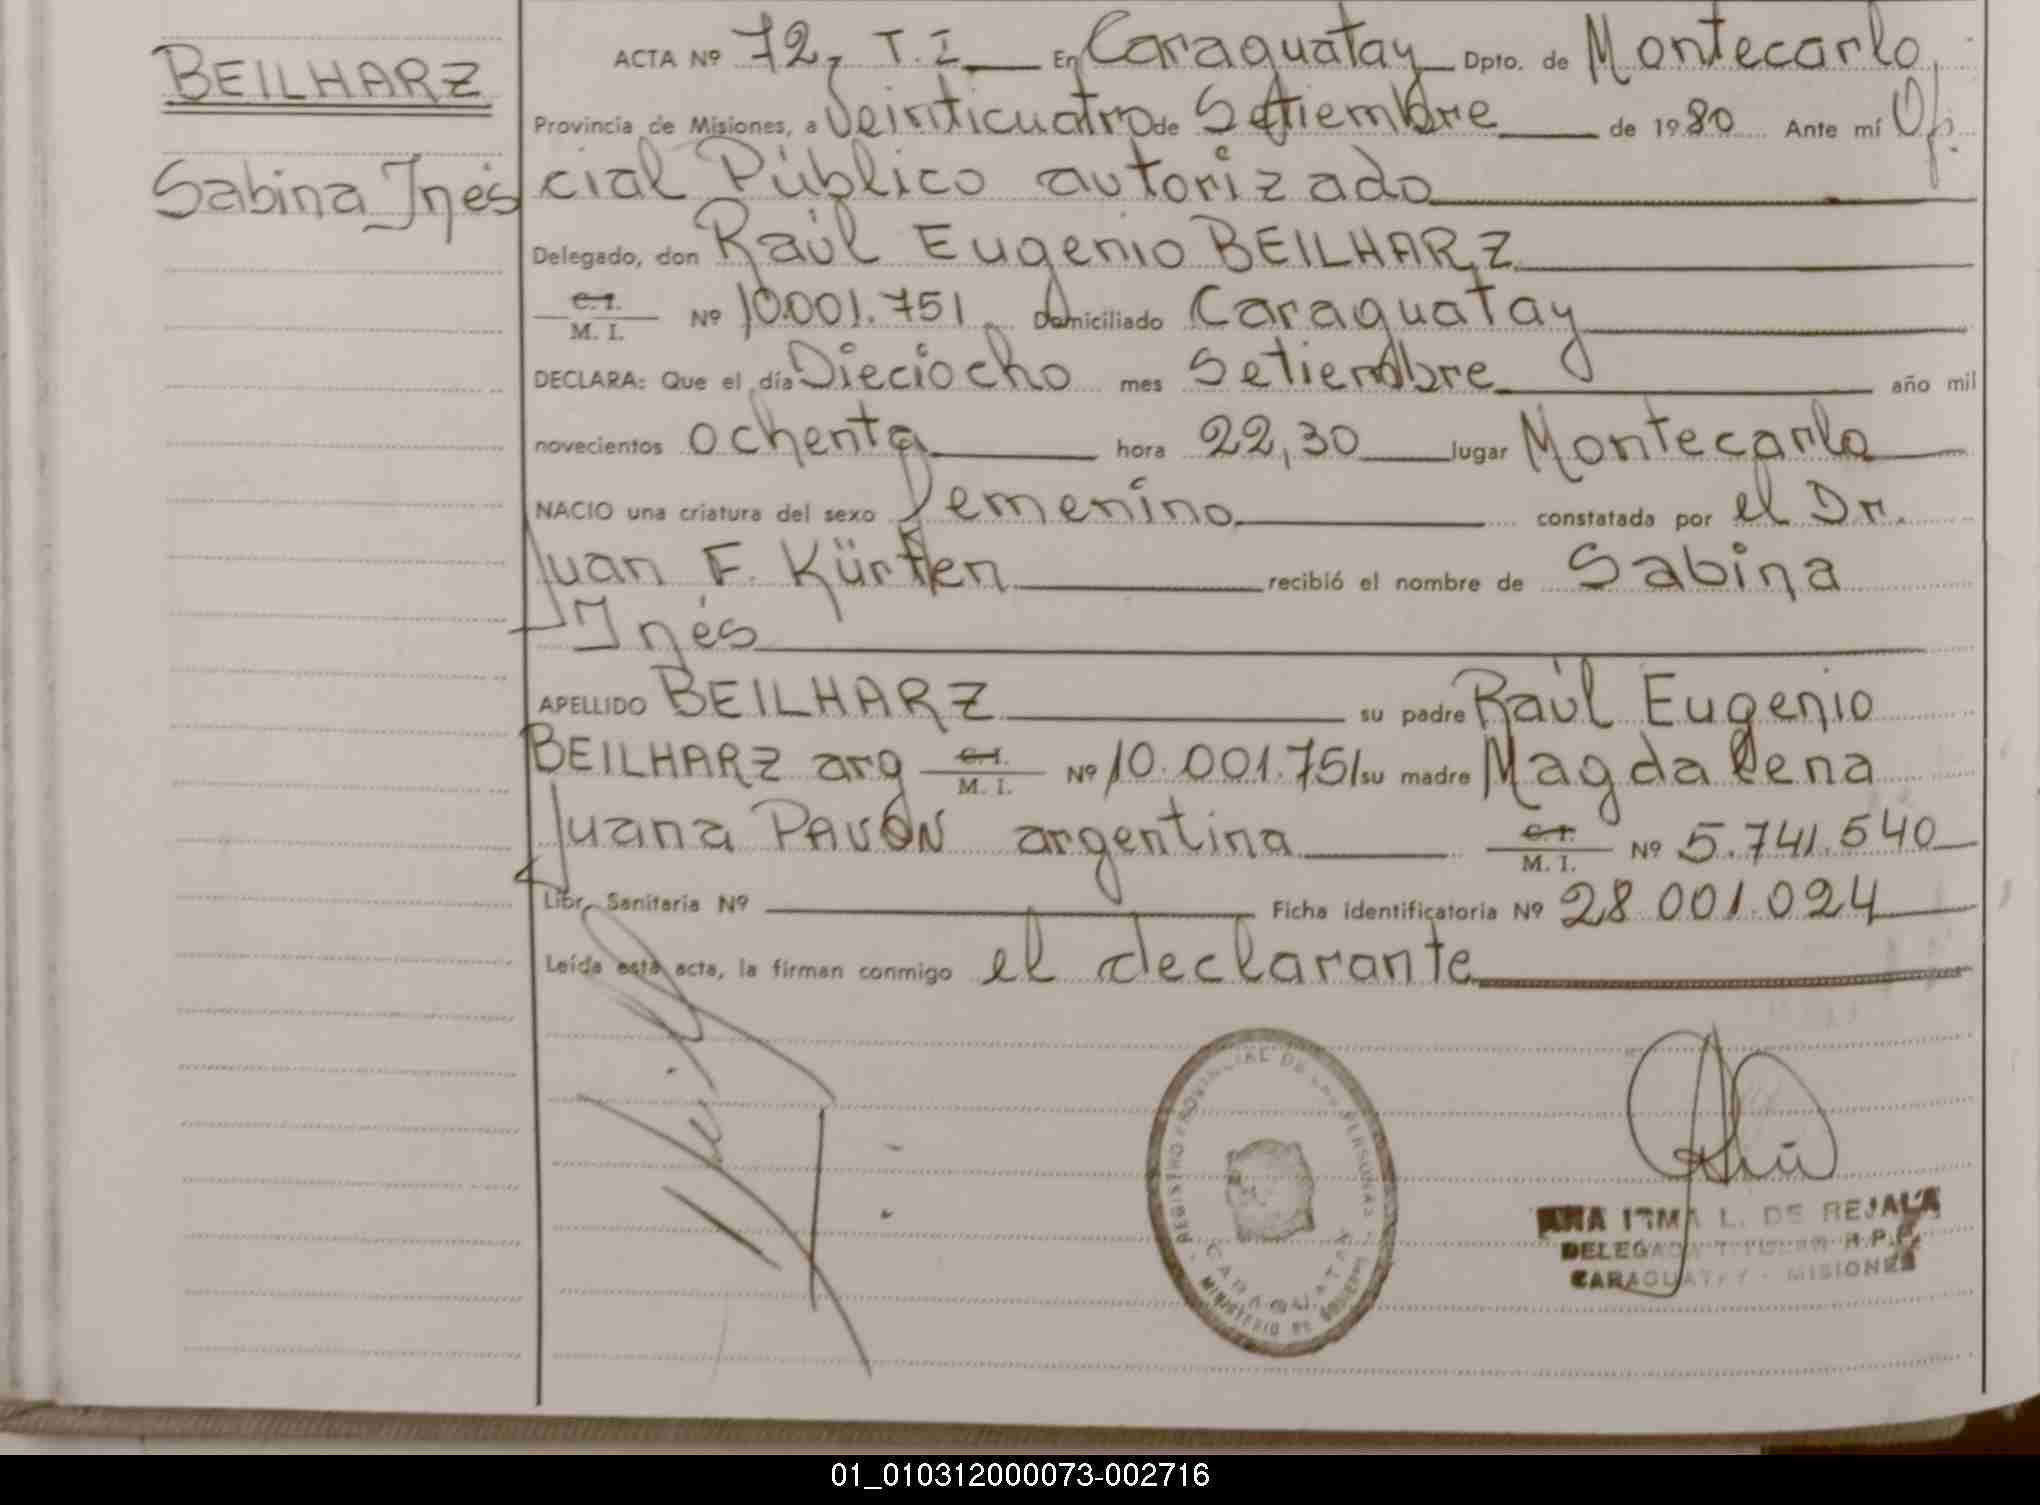 BEILHARZ
Sabina Inés
ACTA Nº 72, T. I. En Caraguatay Dpto. de Montecarlo,
Provincia de Misiones, a Veinticuatro de Setiembre de 1980 Ante mí Ofi-
cial Público autorizado
Delegado, don Raúl Eugenio BEILHARZ
C.I. M. I. Nº 10.001.751 Domiciliado Caraguatay
DECLARA: Que el día Dieciocho mes Setiembre año mil
novecientos ochenta hora 22,30 lugar Montecarlo
NACIO una criatura del sexo Femenino constatada por el Dr.
Juan F. Kürten recibió el nombre de Sabina
Inés
APELLIDO BEILHARZ su padre Raúl Eugenio
BEILHARZ arg C.I. M. I. Nº 10.001.751 su madre Magdalena
Juana PAVÓN argentina C.I. M. I. Nº 5.741.540
Libr. Sanitaria Nº Ficha identificatoria Nº 28.001.024
Leída esta acta, la firman conmigo el declarante
REGISTRO PROVINCIAL DE LAS PERSONAS
CARAGUATAY
MINISTERIO DE GOBIERNO
ANA IRMA L. DE REJALA
DELEGADA TITULAR R.P.P.
CARAGUATAY - MISIONES
01_010312000073-002716